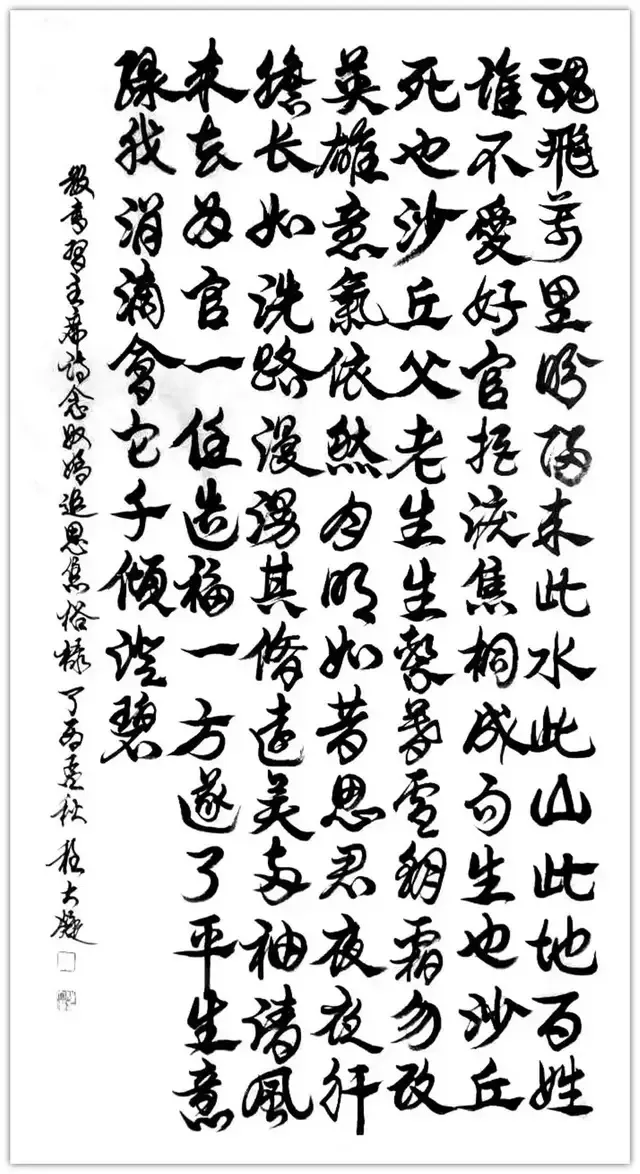 魂飛萬里盼歸来此水此山此地百姓
誰不愛好官把淚焦桐成雨生也沙丘
死也沙丘父老生生繫暮雪朝霜勿改
英雄意氣依然月明如昔思君夜夜肝
膽长如洗路漫漫其脩遠矣两袖清風
来去为官一任造福一方遂了平生意
绿我涓滴會它千傾澄碧
敬書習主席詩念奴嬌追思焦裕禄丁酉孟秋